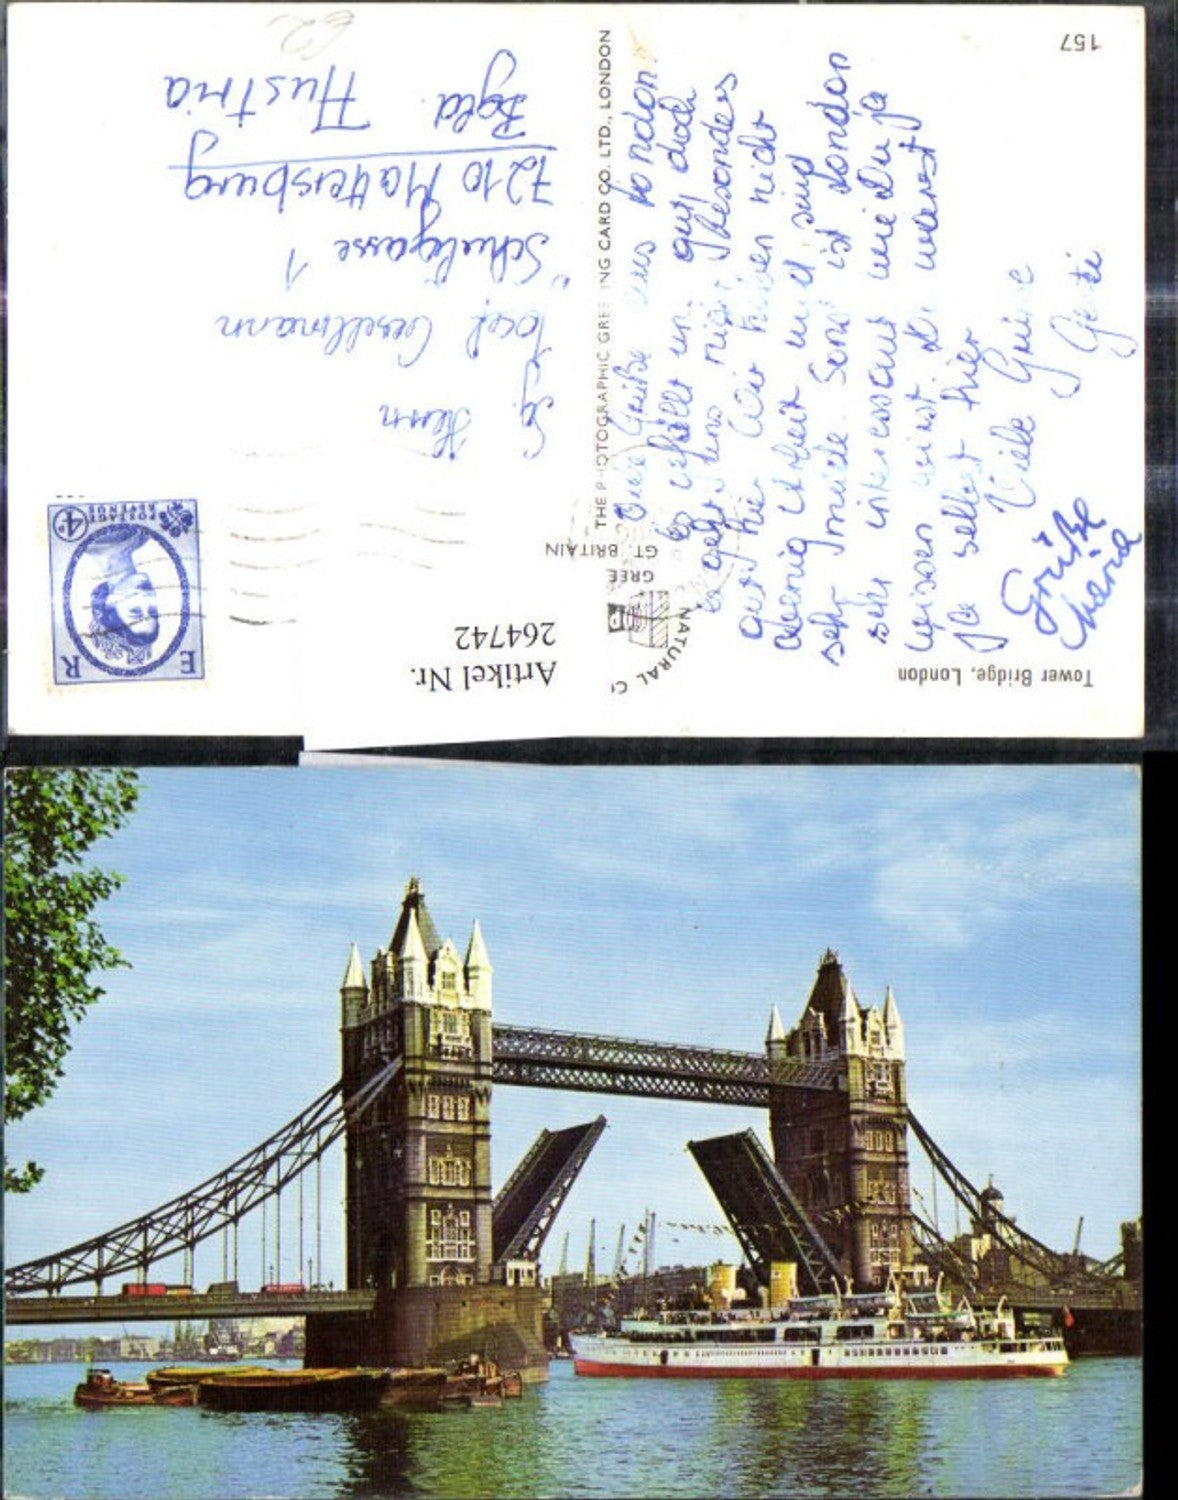 157
Viele Grüße aus London.
Es gefällt uns gut, doch
es geht uns nicht besonders
gut hie. Wir haben nicht
wenig Arbeit und sind
sehr müde. Sonst ist London
sehr interessant wie Du ja
wissen wirst. Du warst
ja selbst hier
Viele Grüße
Gerti
Grüße
Maria
Tower Bridge, London
THE PHOTOGRAPHIC GREETING CARD CO. LTD., LONDON
NATURAL C
GREE
GT. BRITAIN
Artikel Nr.
264742
E R
POSTAGE
REVENUE
4D
Sg. Herrn
Josef Gesellmann
Schulgasse 1
7210 Mattersburg
Bgld. Austria
62